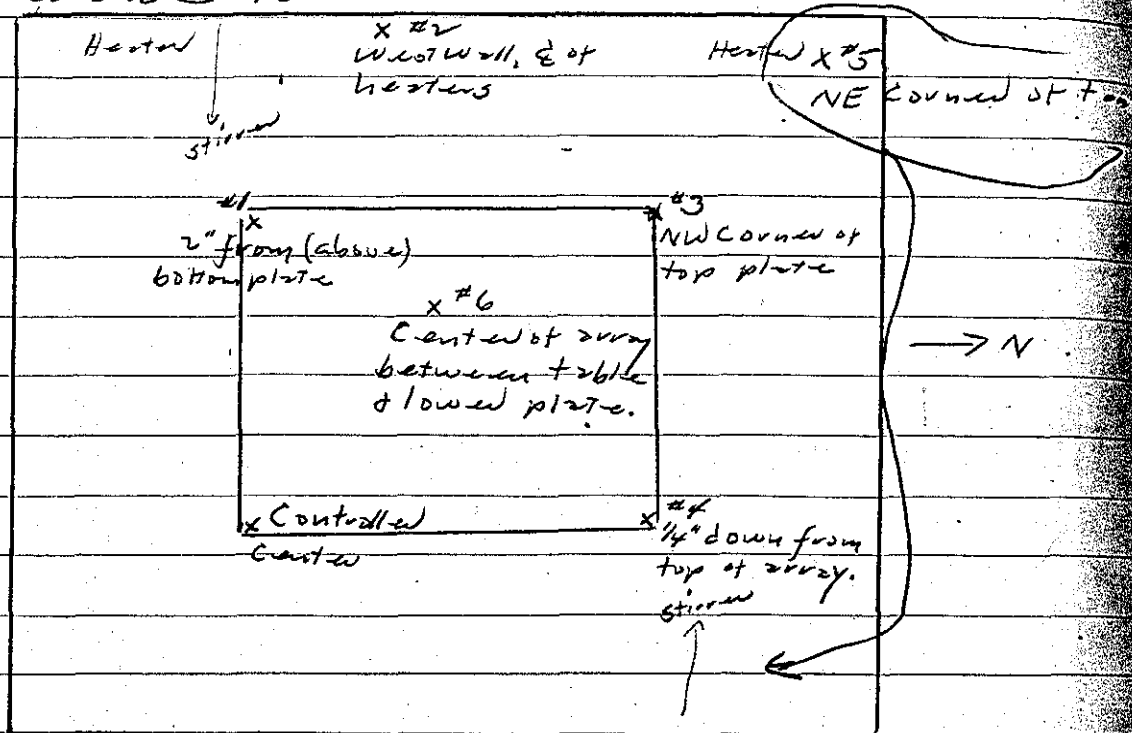 Heater
X #2
West wall, ℄ of
heaters
Heater X #5
NE Corner of
stirrer
#1
X
2" from (above)
bottom plate
X #3
NW Corner of
top plate
X #6
Center of array
between table
& lower plate.
→ N
X Controller
Center
X #4
1/4" down from
top of array.
stirrer